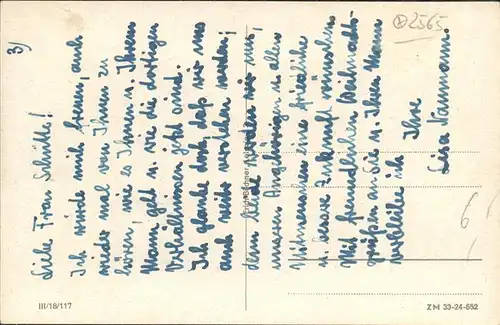 3)
Liebe Frau Schütte!
Ich würde mich freuen, auch
wieder mal von Ihnen zu
hören, wie es Ihnen u. Ihrem
Mann geht u. wie die dortigen
Verhältnisse jetzt sind.
Ich glaube doch, daß wir uns
auch weiter werden;
denn beide werden wir uns,
unseren Angehörigen u. allen
Mitmenschen eine friedliche
u. Zukunft wünschen.
Mit freundlichen Weihnachts-
grüßen an Sie u. Ihren Mann
verbleibe ich Ihre
Lisa Naumann.
2565
6
III/18/117
ZM 33-24-552